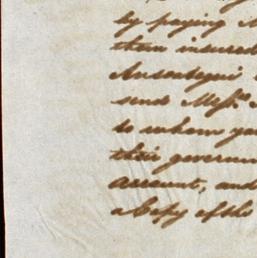 by paying
them insured
Ansoategui
send Mess.rs
to whom you
their governm
account, and
a Copy of the